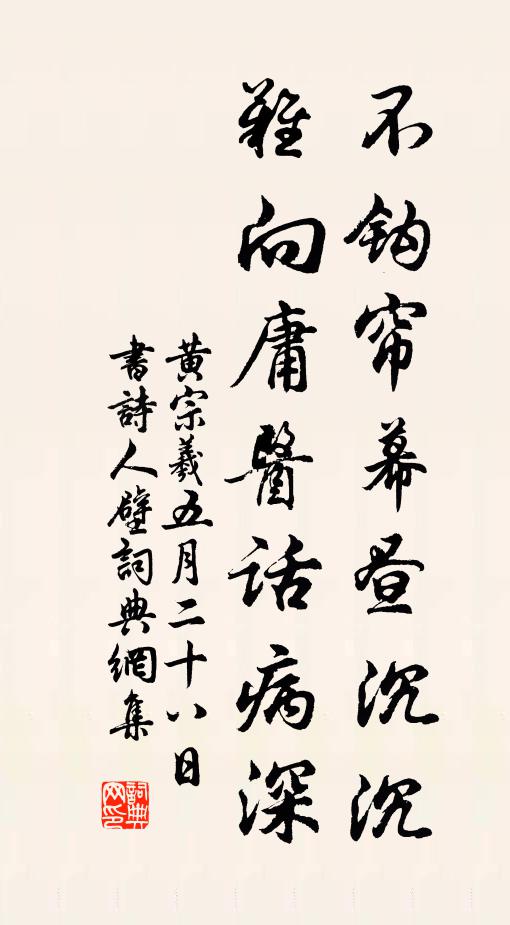 不鈎帘幕昼沉沉
難向庸醫話病深
黄宗羲五月二十八日
書詩人壁詞典網集
詞典网印